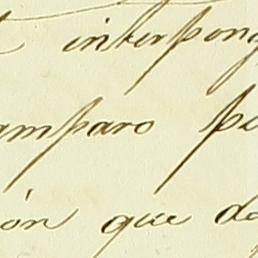 interpong
amparo pe
ión que de